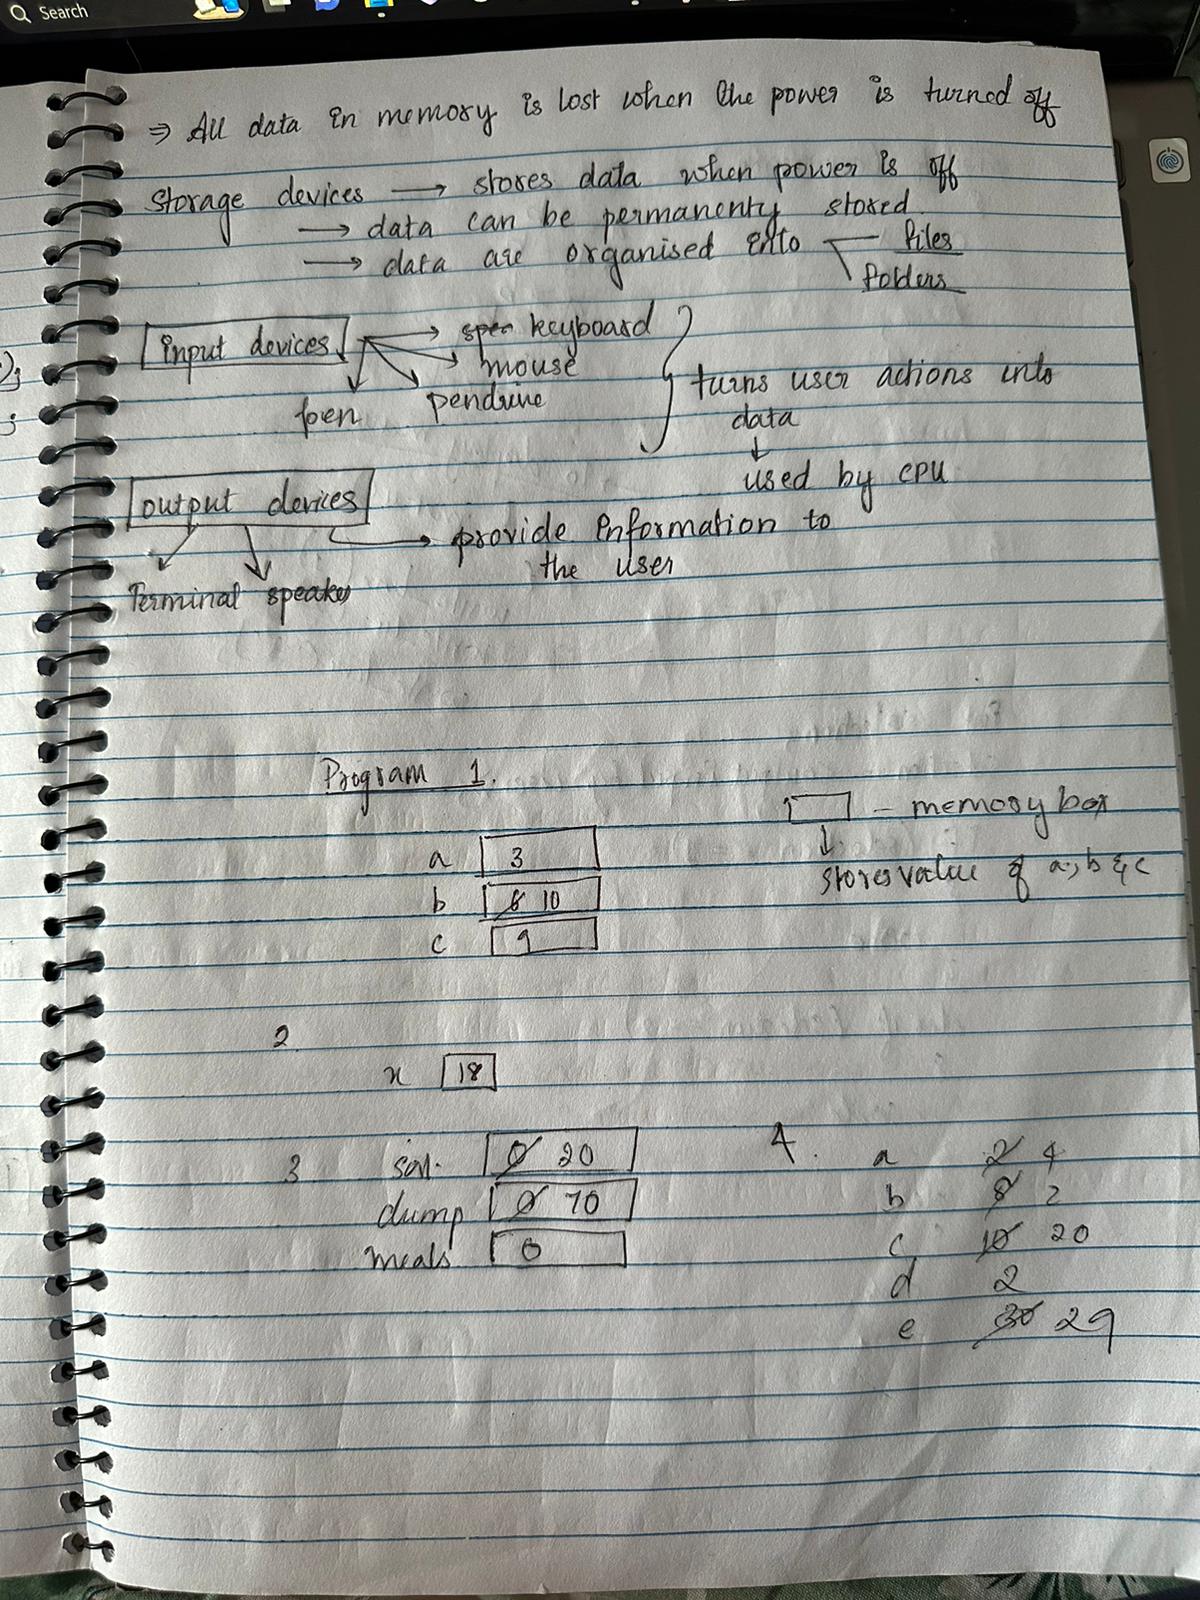 Search
⇒ All data in memory is lost when the power is turned off
Storage devices → stores data when power is off
→ data can be permanenty stored
→ data are organised into files
folders
input devices → keyboard
mouse
pen pendrive
turns user actions into
data
↓
used by CPU
output devices → provide information to
the user
Terminal speaker
Program 1.
▭ - memory box
↓
stores value of a, b & c
a 3
b 6 10
c 9
2
x 18
3. 0 20
dump 0 70
meals 0
4.
a 2 4
b 8 2
c 10 20
d 2
e 30 29